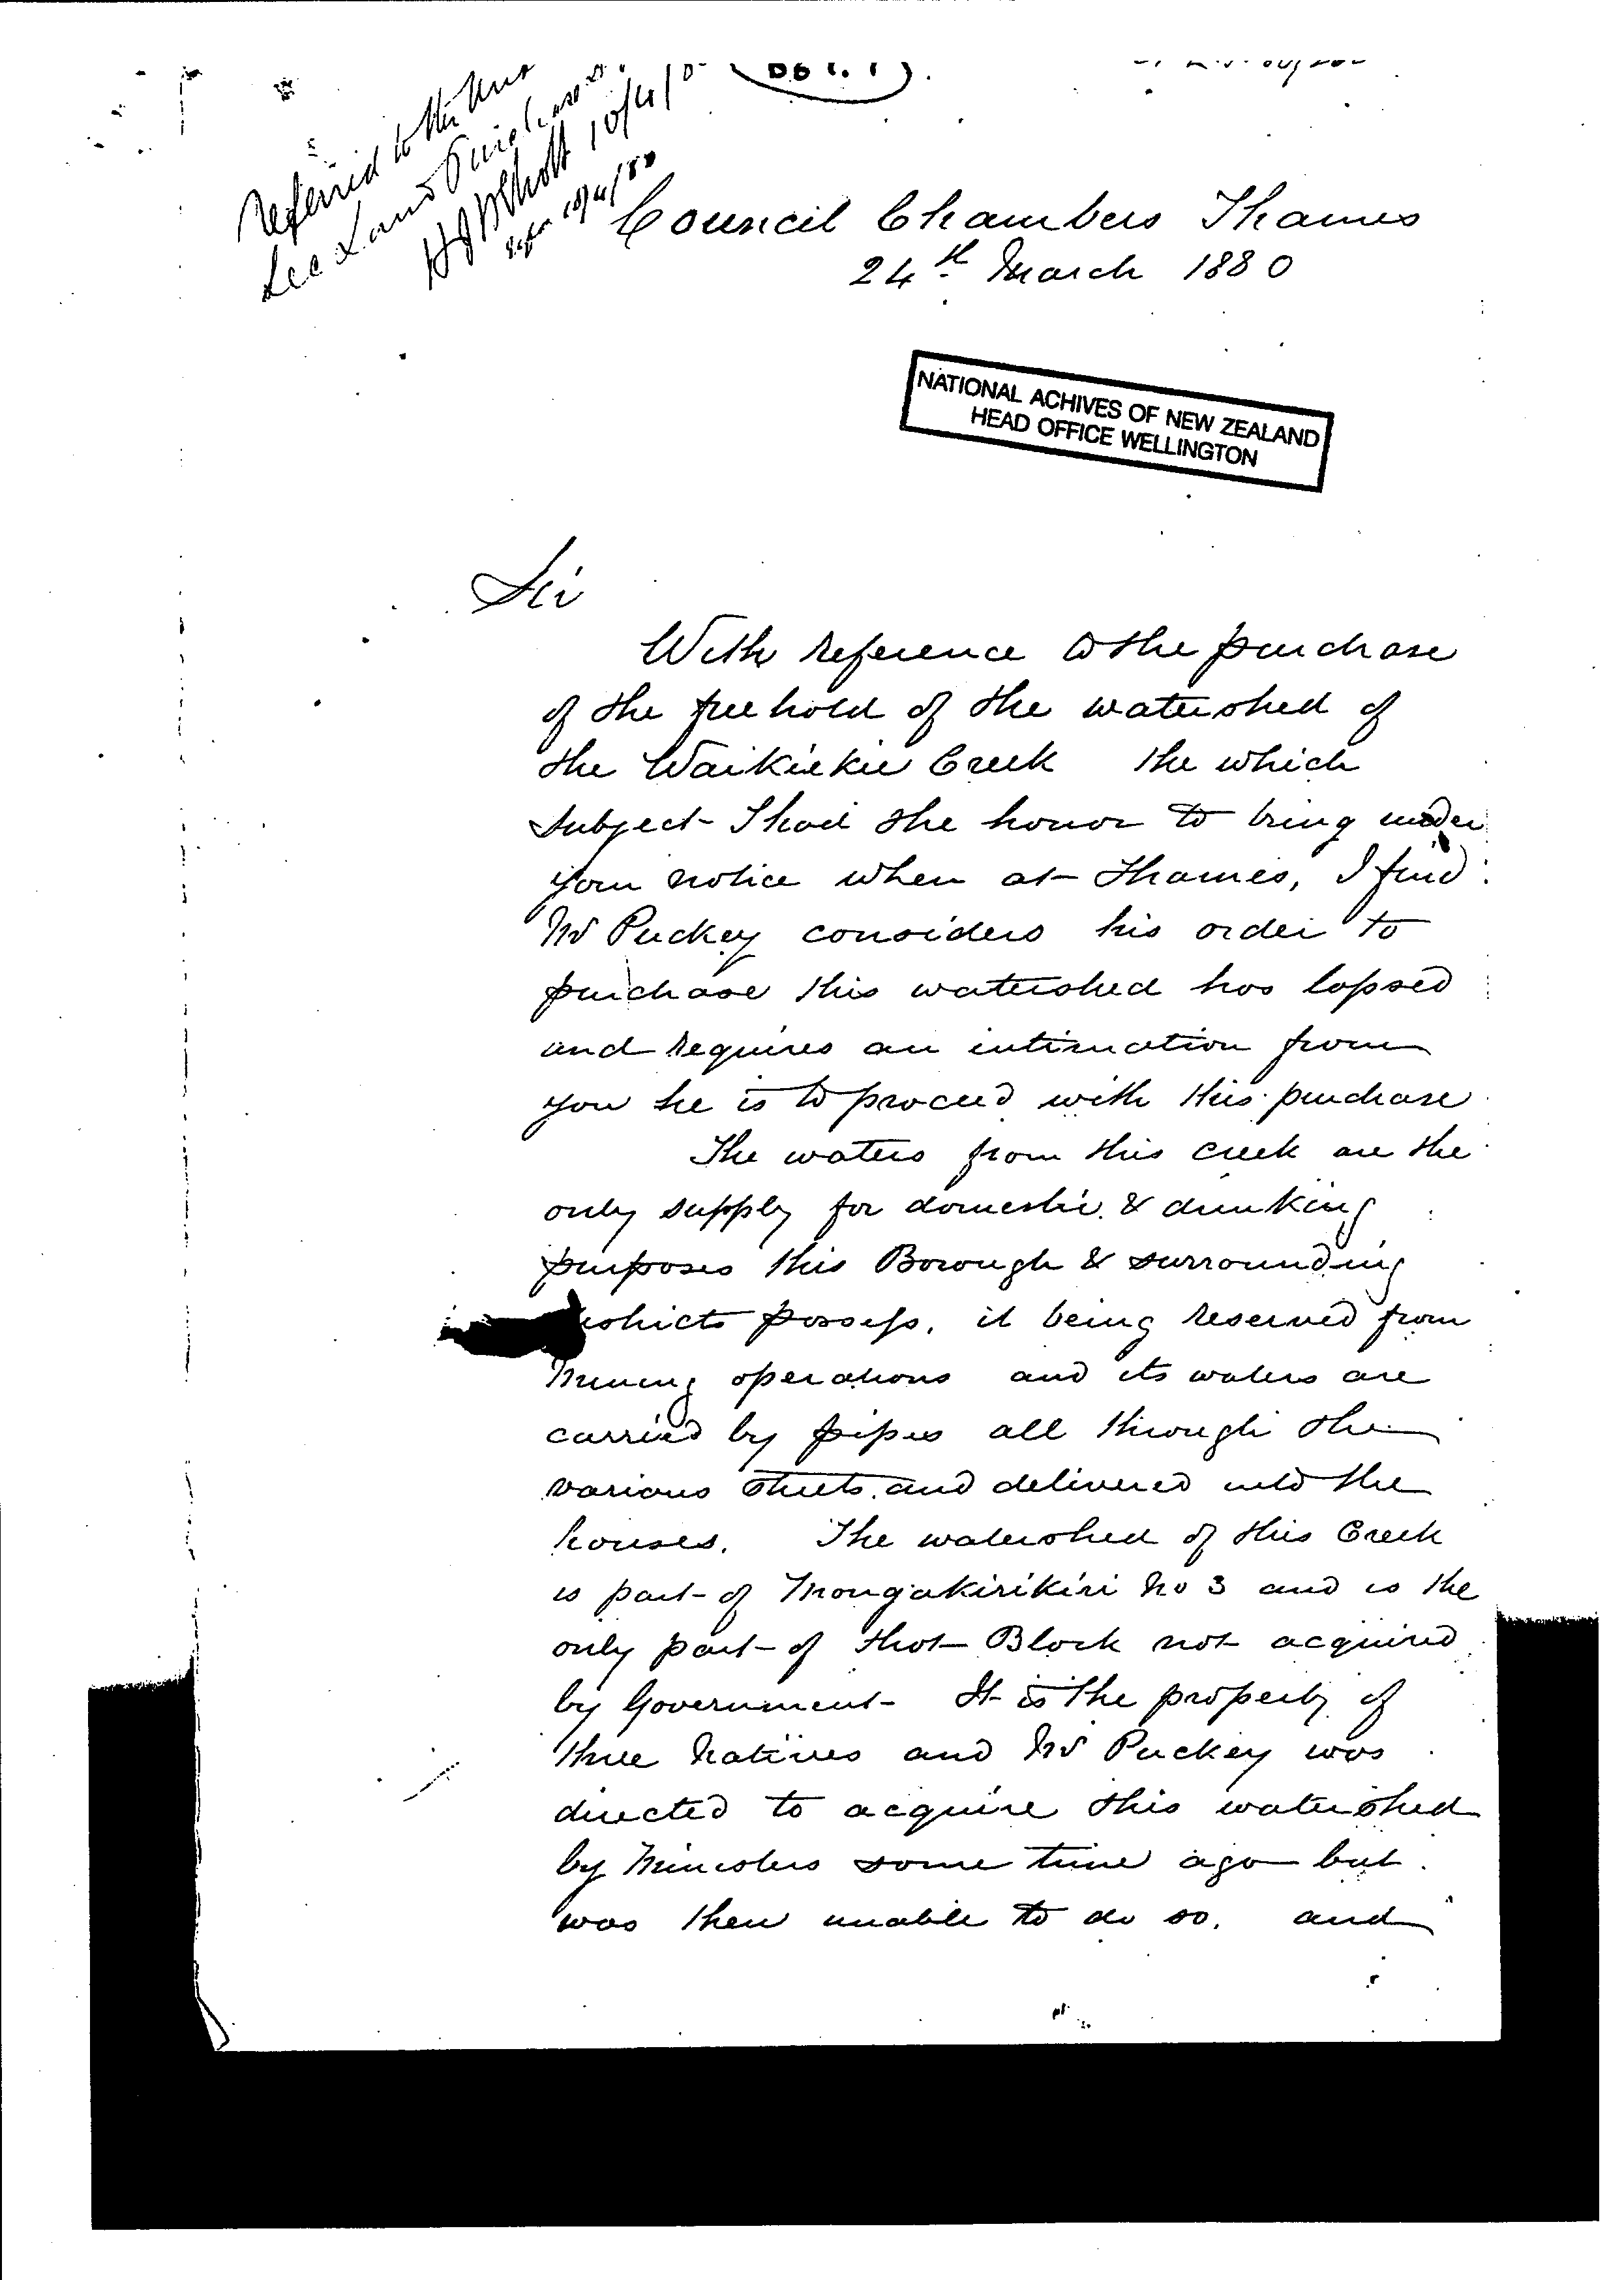 Referred to the Und
Sec Land Purchase
10/4/80
10/4/80
DB 1. 1).
Council Chambers Thames
24th March 1880
NATIONAL ACHIVES OF NEW ZEALAND
HEAD OFFICE WELLINGTON
Sir
With reference to the purchase
of the freehold of the watershed of
the Waikiekie Creek the which
subject I had the honor to bring under
your notice when at Thames, I find
Mr Puckey considers his order to
purchase this watershed has lapsed
and requires an intimation from
you he is to proceed with this purchase
The waters from this creek are the
only supply for domestic & drinking
purposes this Borough & surrounding
districts possess, it being reserved from
Mining operations and its waters are
carried by pipes all through the
various streets and delivered into the
houses. The watershed of this Creek
is part of Mongakirikiri No 3 and is the
only part of that Block not acquired
by Government It is the property of
three Natives and Mr Puckey was
directed to acquire this watershed
by Ministers some time ago but
was then unable to do so. and